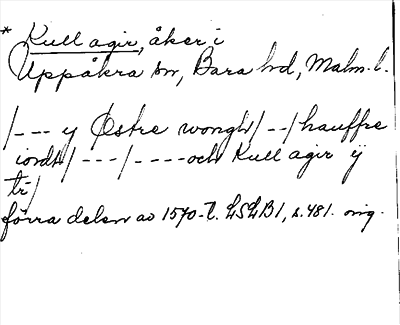 * Kull agir, åker i
Uppåkra sn, Bara hd, Malm. l.
/--- y Østre wongh/--/hauffre
iordt/---/----och Kull agir ÿ
tr/
förra delen av 1570-t. LSLB1, s.481. orig.